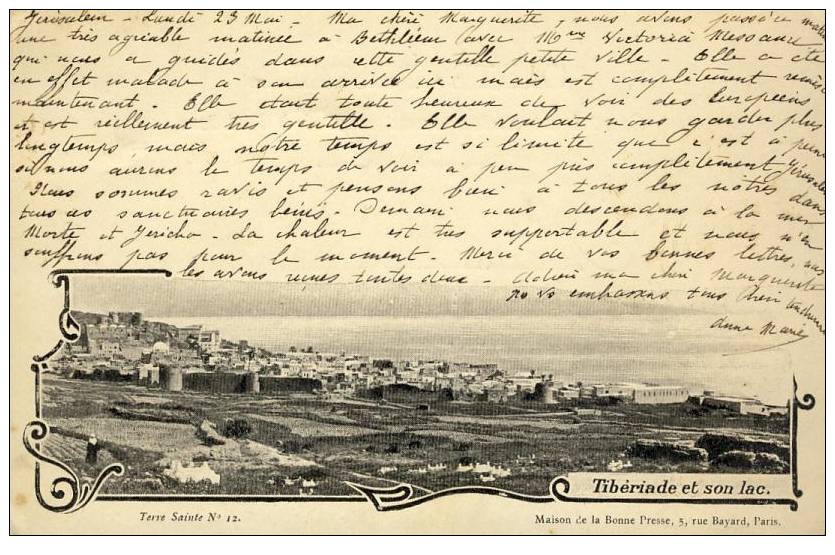 Jérusalem - Lundi 23 Mai - Ma chère Marguerite, nous avons passé ce matin
une très agréable matinée à Bethléem avec Mme Victoria Messaure
qui nous a guidés dans cette gentille petite ville. Elle a été
en effet malade à son arrivée ici mais est complètement remise
maintenant. Elle était toute heureuse de voir des Européens
et est réellement très gentille. Elle voulait nous garder plus
longtemps, mais notre temps est si limité que c'est à peine
si nous aurons le temps de voir à peu près complètement Jérusalem
Nous sommes ravis et pensons bien à tous les nôtres dans
tous ces sanctuaires bénis. Demain nous descendons à la mer
Morte et Jéricho. La chaleur est très supportable et nous n'en
souffrons pas pour le moment. Merci de vos bonnes lettres, nous
les avons reçues toutes deux. Adieu ma chère Marguerite
ns vs embrassons tous bien tendrement
Anne Marie
Tibériade et son lac.
Terre Sainte No 12.
Maison de la Bonne Presse, 5, rue Bayard, Paris.